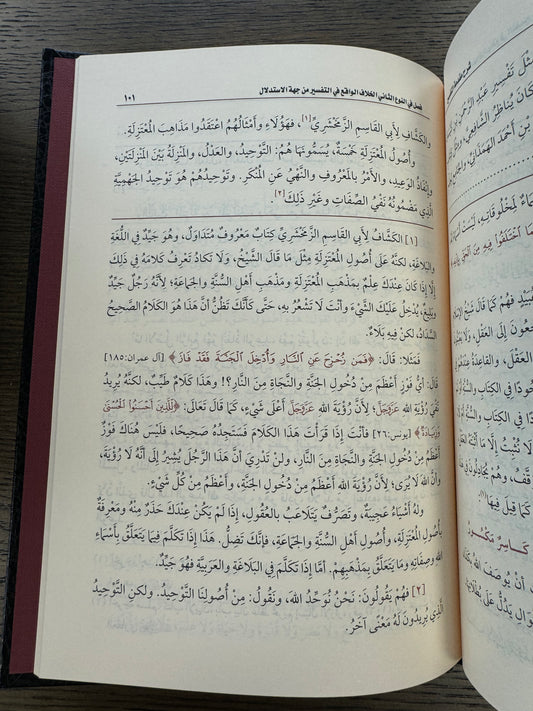 فصل في النوع الثاني الخلاف الواقع في التفسير من جهة الاستدلال ١٠١
وَالكَشَّافُ لِأَبِي القَاسِمِ الزَّمَخْشَرِيِّ[١]، فَهَؤُلَاءِ وَأَمْثَالُهُمُ اعْتَقَدُوا مَذَاهِبَ المُعْتَزِلَةِ.
وَأُصُولُ المُعْتَزِلَةِ خَمْسَةٌ، يُسَمُّونَهَا هُمْ: التَّوْحِيدَ، وَالعَدْلَ، وَالمَنْزِلَةَ بَيْنَ المَنْزِلَتَيْنِ،
وَإِنْفَاذَ الوَعِيدِ، وَالأَمْرَ بِالمَعْرُوفِ وَالنَّهْيَ عَنِ المُنْكَرِ. وَتَوْحِيدُهُمْ هُوَ تَوْحِيدُ الجَهْمِيَّةِ
الَّذِي مَضْمُونُهُ نَفْيُ الصِّفَاتِ وَغَيْرِ ذَلِكَ[٢].
[١] الكَشَّافُ لِأَبِي القَاسِمِ الزَّمَخْشَرِيِّ كِتَابٌ مَعْرُوفٌ مُتَدَاوَلٌ، وَهُوَ جَيِّدٌ فِي اللُّغَةِ
وَالبَلَاغَةِ، لَكِنَّهُ عَلَى أُصُولِ المُعْتَزِلَةِ مِثْلُ مَا قَالَ الشَّيْخُ، وَلَا تَكَادُ تَعْرِفُ كَلَامَهُ فِي ذَلِكَ
إِلَّا إِذَا كَانَ عِنْدَكَ عِلْمٌ بِمَذْهَبِ المُعْتَزِلَةِ وَمَذْهَبِ أَهْلِ السُّنَّةِ وَالجَمَاعَةِ؛ لِأَنَّهُ رَجُلٌ جَيِّدٌ
وَبَلِيغٌ، يُدْخِلُ عَلَيْكَ الشَّيْءَ وَأَنْتَ لَا تَشْعُرُ بِهِ، حَتَّى كَأَنَّكَ تَظُنُّ أَنَّ هَذَا هُوَ الكَلَامُ الصَّحِيحُ
السَّدَادُ، لَكِنْ فِيهِ بَلَاءٌ.
فَمَثَلًا: قَالَ: ﴿فَمَن زُحْزِحَ عَنِ ٱلنَّارِ وَأُدْخِلَ ٱلْجَنَّةَ فَقَدْ فَازَ﴾ [آل عمران:١٨٥]
قَالَ: أَيُّ فَوْزٍ أَعْظَمُ مِنْ دُخُولِ الجَنَّةِ وَالنَّجَاةِ مِنَ النَّارِ؟! وَهَذَا كَلَامٌ طَيِّبٌ، لَكِنَّهُ يُرِيدُ
نَفْيَ رُؤْيَةِ اللهِ عَزَّوَجَلَّ؛ لِأَنَّ رُؤْيَةَ اللهِ عَزَّوَجَلَّ أَعْلَى شَيْءٍ، كَمَا قَالَ تَعَالَى: ﴿لِّلَّذِينَ أَحْسَنُوا۟ ٱلْحُسْنَىٰ
وَزِيَادَةٌ﴾ [يونس:٢٦] فَأَنْتَ إِذَا قَرَأْتَ هَذَا الكَلَامَ فَسَتَجِدُهُ صَحِيحًا، فَلَيْسَ هُنَاكَ فَوْزٌ
أَعْظَمَ مِنْ دُخُولِ الجَنَّةِ وَالنَّجَاةِ مِنَ النَّارِ، وَلَنْ تَدْرِيَ أَنَّ هَذَا الرَّجُلَ يُشِيرُ إِلَى أَنَّهُ لَا رُؤْيَةَ،
وَأَنَّ اللهَ لَا يُرَى؛ لِأَنَّ رُؤْيَةَ اللهِ أَعْظَمُ مِنْ دُخُولِ الجَنَّةِ، وَأَعْظَمُ مِنْ كُلِّ شَيْءٍ.
وَلَهُ أَشْيَاءُ عَجِيبَةٌ، وَتَصَرُّفٌ يَتَلَاعَبُ بِالعُقُولِ، إِذَا لَمْ يَكُنْ عِنْدَكَ حَذَرٌ مِنْهُ لَا مَعْرِفَةٌ
بِأُصُولِ المُعْتَزِلَةِ، وَأُصُولِ أَهْلِ السُّنَّةِ وَالجَمَاعَةِ، فَإِنَّكَ تَضِلُّ. هَذَا إِذَا تَكَلَّمَ فِيمَا يَتَعَلَّقُ بِأَسْمَاءِ
اللهِ وَصِفَاتِهِ وَمَا يَتَعَلَّقُ بِمَذْهَبِهِمْ. أَمَّا إِذَا تَكَلَّمَ فِي البَلَاغَةِ وَالعَرَبِيَّةِ فَهُوَ جَيِّدٌ.
[٢] فَهُمْ يَقُولُونَ: نَحْنُ نُوَحِّدُ اللهَ، وَنَقُولُ: مِنْ أُصُولِنَا التَّوْحِيدُ. وَلَكِنِ التَّوْحِيدُ
الَّذِي يُرِيدُونَ لَهُ مَعْنًى آخَرُ.